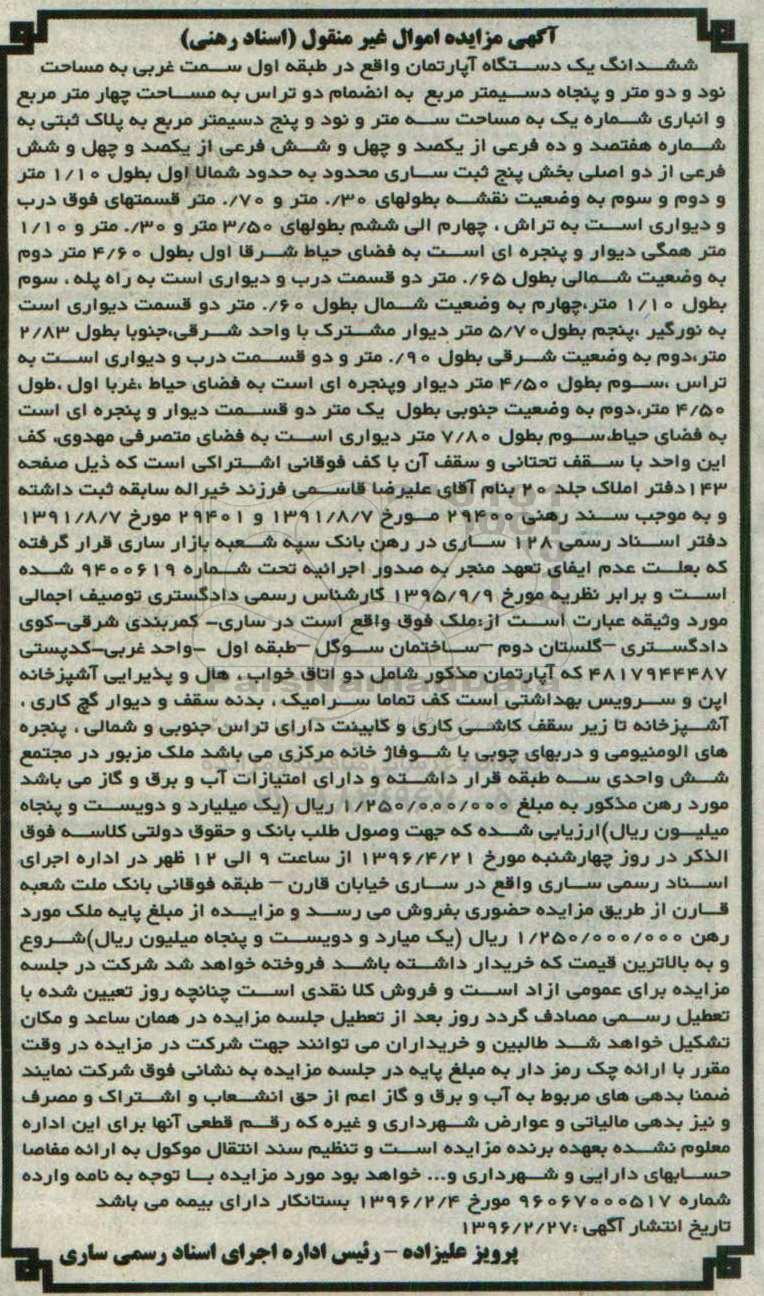 آگهی مزایده اموال غیر منقول (اسناد رهنی)
ششدانگ یک دستگاه آپارتمان واقع در طبقه اول سمت غربی به مساحت
نود و دو متر و پنجاه دسیمتر مربع به انضمام دو تراس به مساحت چهار متر مربع
و انباری شماره یک به مساحت سه متر و نود و پنج دسیمتر مربع به پلاک ثبتی به
شماره هفتصد و ده فرعی از یکصد و چهل و شش فرعی از یکصد و چهل و شش
فرعی از دو اصلی بخش پنج ثبت ساری محدود به حدود شمالا اول بطول ۱/۱۰ متر
و دوم و سوم به وضعیت نقشه بطولهای ۰/۳۰ متر و ۰/۷۰ متر قسمتهای فوق درب
و دیواری است به تراش ، چهارم الی ششم بطولهای ۳/۵۰ متر و ۰/۳۰ متر و ۱/۱۰
متر همگی دیوار و پنجره ای است به فضای حیاط شرقا اول بطول ۴/۶۰ متر دوم
به وضعیت شمالی بطول ۰/۶۵ متر دو قسمت درب و دیواری است به راه پله ، سوم
بطول ۱/۱۰ متر،چهارم به وضعیت شمال بطول ۰/۶۰ متر دو قسمت دیواری است
به نورگیر ،پنجم بطول۵/۷۰ متر دیوار مشترک با واحد شرقی،جنوبا بطول ۲/۸۳
متر،دوم به وضعیت شرقی بطول ۰/۹۰ متر و دو قسمت درب و دیواری است به
تراس ،سوم بطول ۴/۵۰ متر دیوار وپنجره ای است به فضای حیاط ،غربا اول ،طول
۴/۵۰ متر،دوم به وضعیت جنوبی بطول یک متر دو قسمت دیوار و پنجره ای است
به فضای حیاط،سوم بطول ۷/۸۰ متر دیواری است به فضای متصرفی مهدوی، کف
این واحد با سقف تحتانی و سقف آن با کف فوقانی اشتراکی است که ذیل صفحه
۱۴۳دفتر املاک جلد ۲۰ بنام آقای علیرضا قاسمی فرزند خیراله سابقه ثبت داشته
و به موجب سند رهنی ۲۹۴۰۰ مورخ ۱۳۹۱/۸/۷ و ۲۹۴۰۱ مورخ ۱۳۹۱/۸/۷
دفتر اسناد رسمی ۱۲۸ ساری در رهن بانک سپه شعبه بازار ساری قرار گرفته
که بعلت عدم ایفای تعهد منجر به صدور اجرائیه تحت شماره ۹۴۰۰۶۱۹ شده
است و برابر نظریه مورخ ۱۳۹۵/۹/۹ کارشناس رسمی دادگستری توصیف اجمالی
مورد وثیقه عبارت است از:ملک فوق واقع است در ساری- کمربندی شرقی-کوی
دادگستری -گلستان دوم -ساختمان سوگل -طبقه اول -واحد غربی-کدپستی
۴۸۱۷۹۴۴۴۸۷ که آپارتمان مذکور شامل دو اتاق خواب ، هال و پذیرایی آشپزخانه
اپن و سرویس بهداشتی است کف تماما سرامیک ، بدنه سقف و دیوار گچ کاری ،
آشپزخانه تا زیر سقف کاشی کاری و کابینت دارای تراس جنوبی و شمالی ، پنجره
های الومنیومی و دربهای چوبی با شوفاژ خانه مرکزی می باشد ملک مزبور در مجتمع
شش واحدی سه طبقه قرار داشته و دارای امتیازات آب و برق و گاز می باشد
مورد رهن مذکور به مبلغ ۱/۲۵۰/۰۰۰/۰۰۰ ریال (یک میلیارد و دویست و پنجاه
میلیون ریال)ارزیابی شده که جهت وصول طلب بانک و حقوق دولتی کلاسه فوق
الذکر در روز چهارشنبه مورخ ۱۳۹۶/۴/۲۱ از ساعت ۹ الی ۱۲ ظهر در اداره اجرای
اسناد رسمی ساری واقع در ساری خیابان قارن - طبقه فوقانی بانک ملت شعبه
قارن از طریق مزایده حضوری بفروش می رسد و مزایده از مبلغ پایه ملک مورد
رهن ۱/۲۵۰/۰۰۰/۰۰۰ ریال (یک میارد و دویست و پنجاه میلیون ریال)شروع
و به بالاترین قیمت که خریدار داشته باشد فروخته خواهد شد شرکت در جلسه
مزایده برای عمومی ازاد است و فروش کلا نقدی است چنانچه روز تعیین شده با
تعطیل رسمی مصادف گردد روز بعد از تعطیل جلسه مزایده در همان ساعد و مکان
تشکیل خواهد شد طالبین و خریداران می توانند جهت شرکت در مزایده در وقت
مقرر با ارائه چک رمز دار به مبلغ پایه در جلسه مزایده به نشانی فوق شرکت نمایند
ضمنا بدهی های مربوط به آب و برق و گاز اعم از حق انشعاب و اشتراک و مصرف
و نیز بدهی مالیاتی و عوارض شهرداری و غیره که رقم قطعی آنها برای این اداره
معلوم نشده بعهده برنده مزایده است و تنظیم سند انتقال موکول به ارائه مفاصا
حسابهای دارایی و شهرداری و... خواهد بود مورد مزایده با توجه به نامه وارده
شماره ۹۶۰۶۷۰۰۰۵۱۷ مورخ ۱۳۹۶/۲/۴ بستانکار دارای بیمه می باشد
تاریخ انتشار آگهی :۱۳۹۶/۲/۲۷
پرویز علیزاده - رئیس اداره اجرای اسناد رسمی ساری